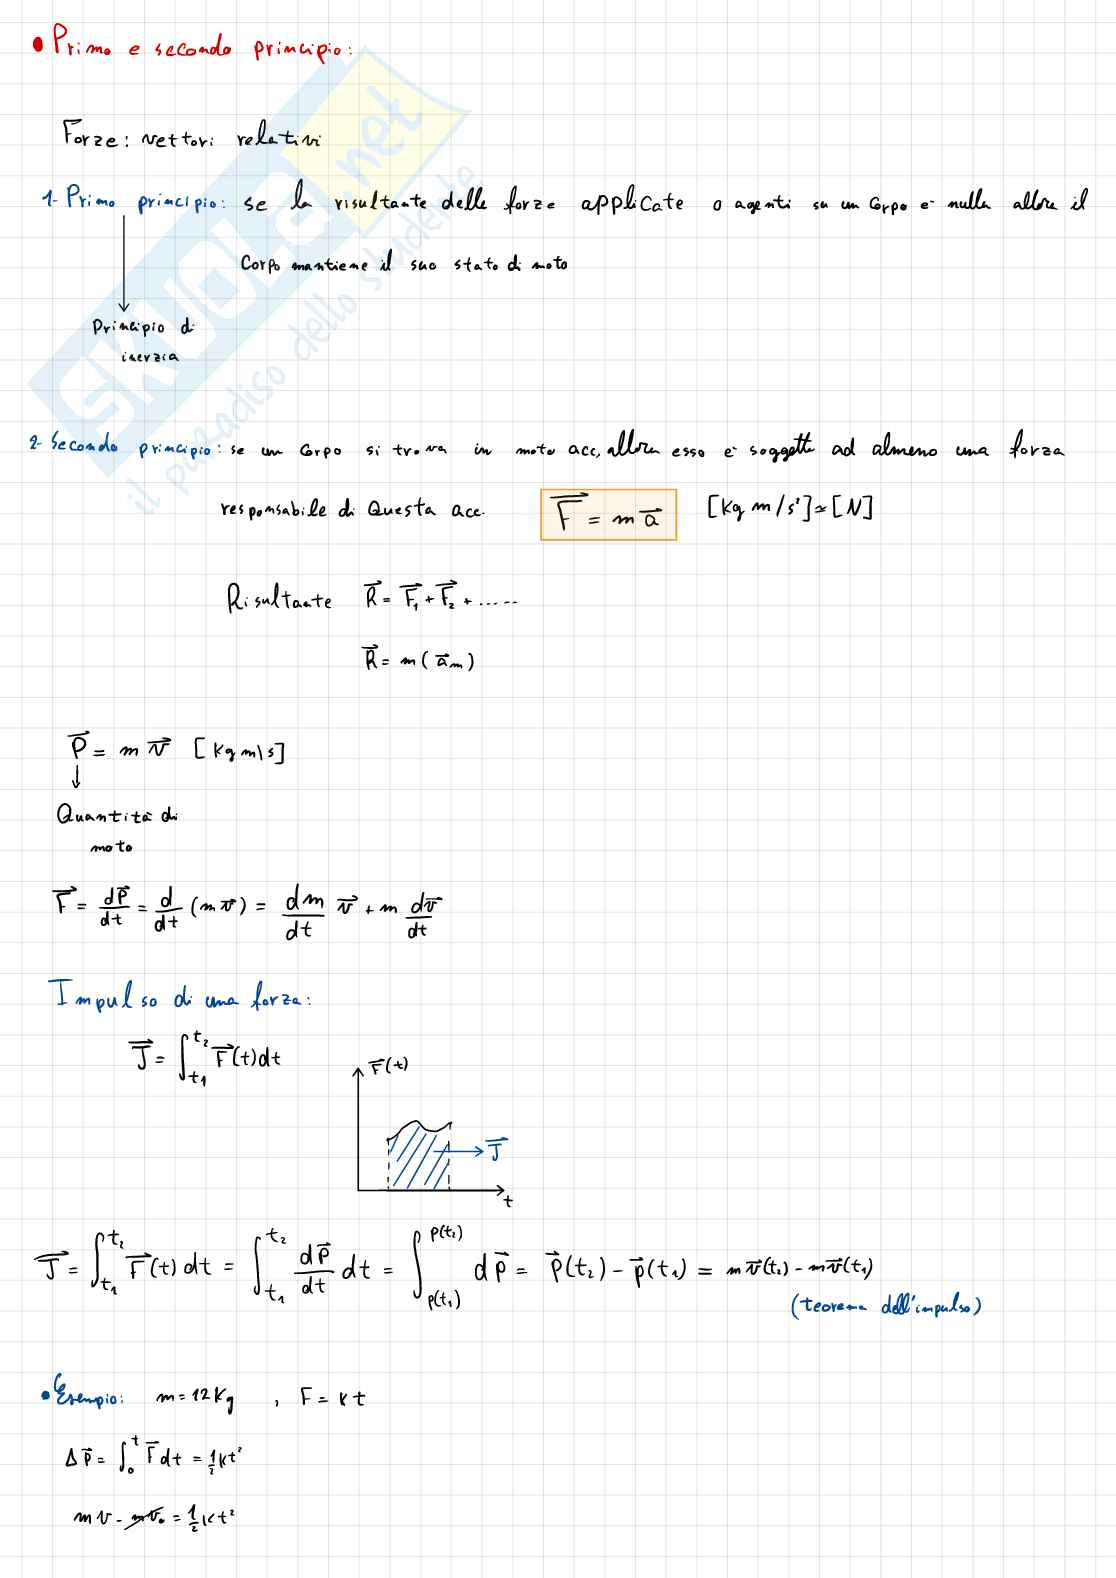 • Primo e secondo principio:
Forze: vettori relativi
1- Primo principio: se la risultante delle forze applicate o agenti su un corpo e' nulla allora il
corpo mantiene il suo stato di moto
Principio di
inerzia
2- Secondo principio: se un corpo si trova in moto acc, allora esso e' soggetto ad almeno una forza
responsabile di Questa acc. F⃗ = m a⃗ [Kg m/s²] ≃ [N]
Risultante R⃗ = F⃗₁ + F⃗₂ + ......
R⃗ = m (a⃗m)
P⃗ = m v⃗ [Kg m\s]
Quantità di
moto
F⃗ = dP⃗/dt = d/dt (m v⃗) = dm/dt v⃗ + m dv⃗/dt
Impulso di una forza:
J⃗ = ∫_{t₁}^{t₂} F⃗(t) dt
F⃗(t)
J⃗
t
J⃗ = ∫_{t₁}^{t₂} F⃗(t) dt = ∫_{t₁}^{t₂} dp⃗/dt dt = ∫_{p(t₁)}^{p(t₂)} dp⃗ = p⃗(t₂) - p⃗(t₁) = m v⃗(t₂) - m v⃗(t₁)
(teorema dell'impulso)
• Esempio: m = 12 Kg , F = k t
Δp⃗ = ∫₀ᵗ F⃗ dt = ½ k t²
m v - m v₀ = ½ k t²
SKUOLA.net
il paradiso dello studente